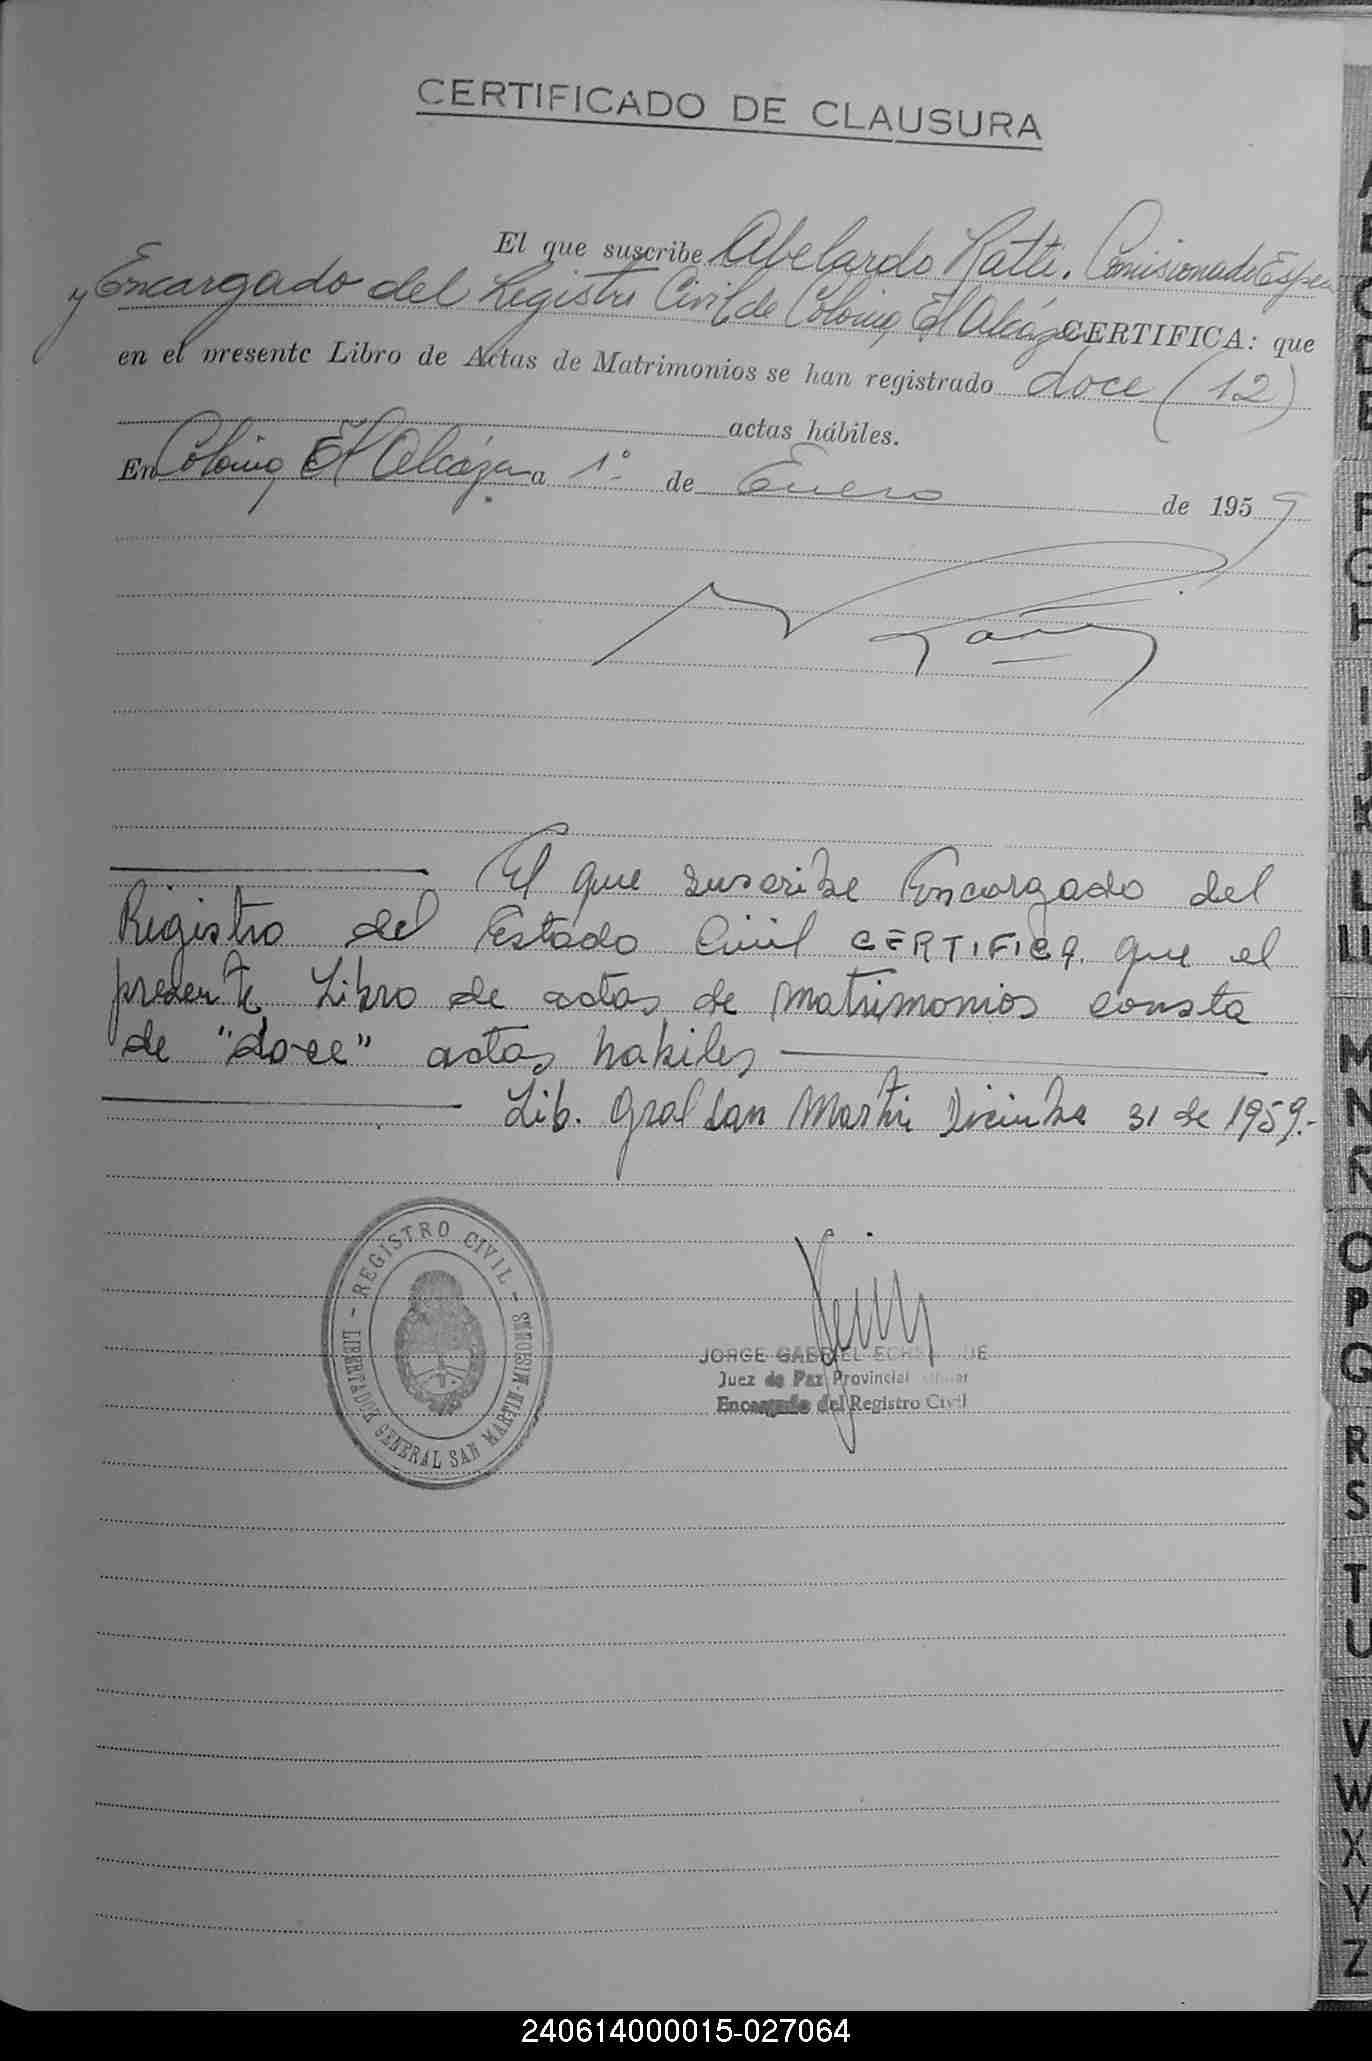 CERTIFICADO DE CLAUSURA
El que suscribe Abelardo Ratti. Comisionado
y Encargado del Registro Civil de Colonia El Alcázar CERTIFICA: que
en el presente Libro de Actas de Matrimonios se han registrado doce (12)
actas hábiles.
En Colonia El Alcázar a 1º de Enero de 1959
El que suscribe Encargado del
Registro del Estado Civil CERTIFICA que el
presente Libro de actas de matrimonios consta
de "doce" actas habiles
Lib. Gral San Martin Diciembre 31 de 1959.-
- REGISTRO CIVIL -
LIBERTADOR GENERAL SAN MARTIN - MISIONES
JORGE GABRIEL
Juez de Paz Provincial
Encargado del Registro Civil
E
F
G
H
I
J
K
L
LL
M
N
Ñ
O
P
Q
R
S
T
U
V
W
X
Y
Z
240614000015-027064